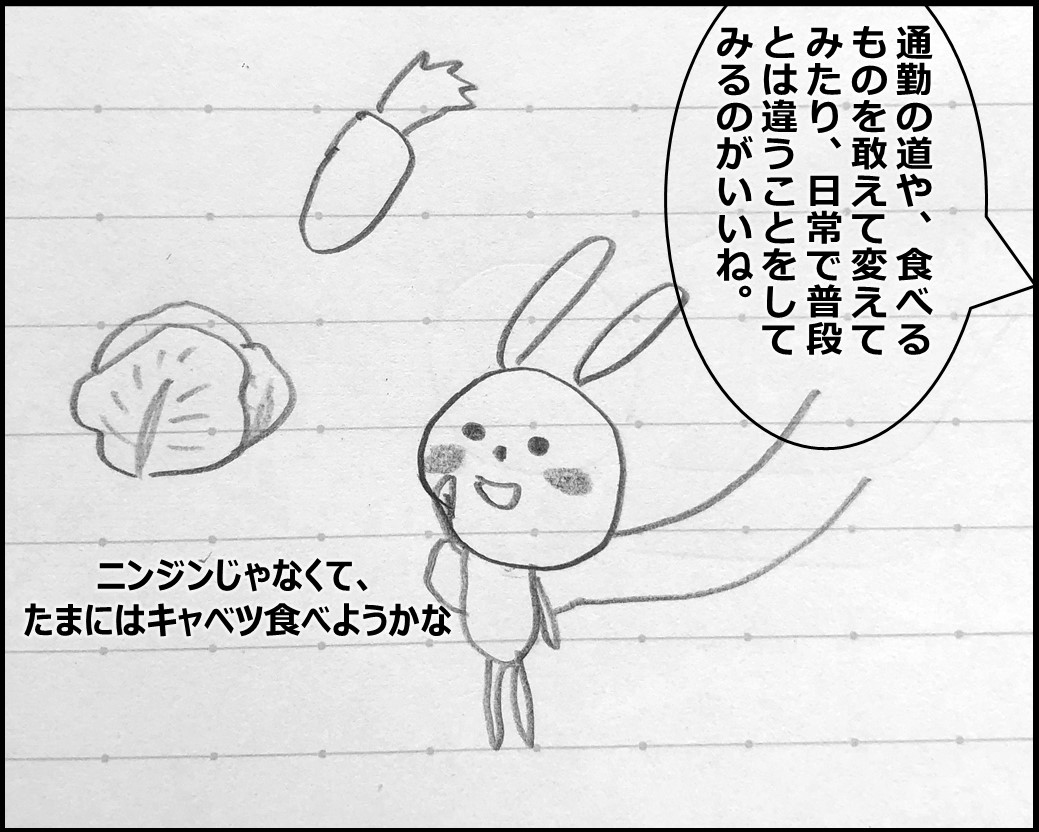 通勤の道や、食べる
ものを敢えて変えて
みたり、日常で普段
とは違うことをして
みるのがいいね。
ニンジンじゃなくて、
たまにはキャベツ食べようかな